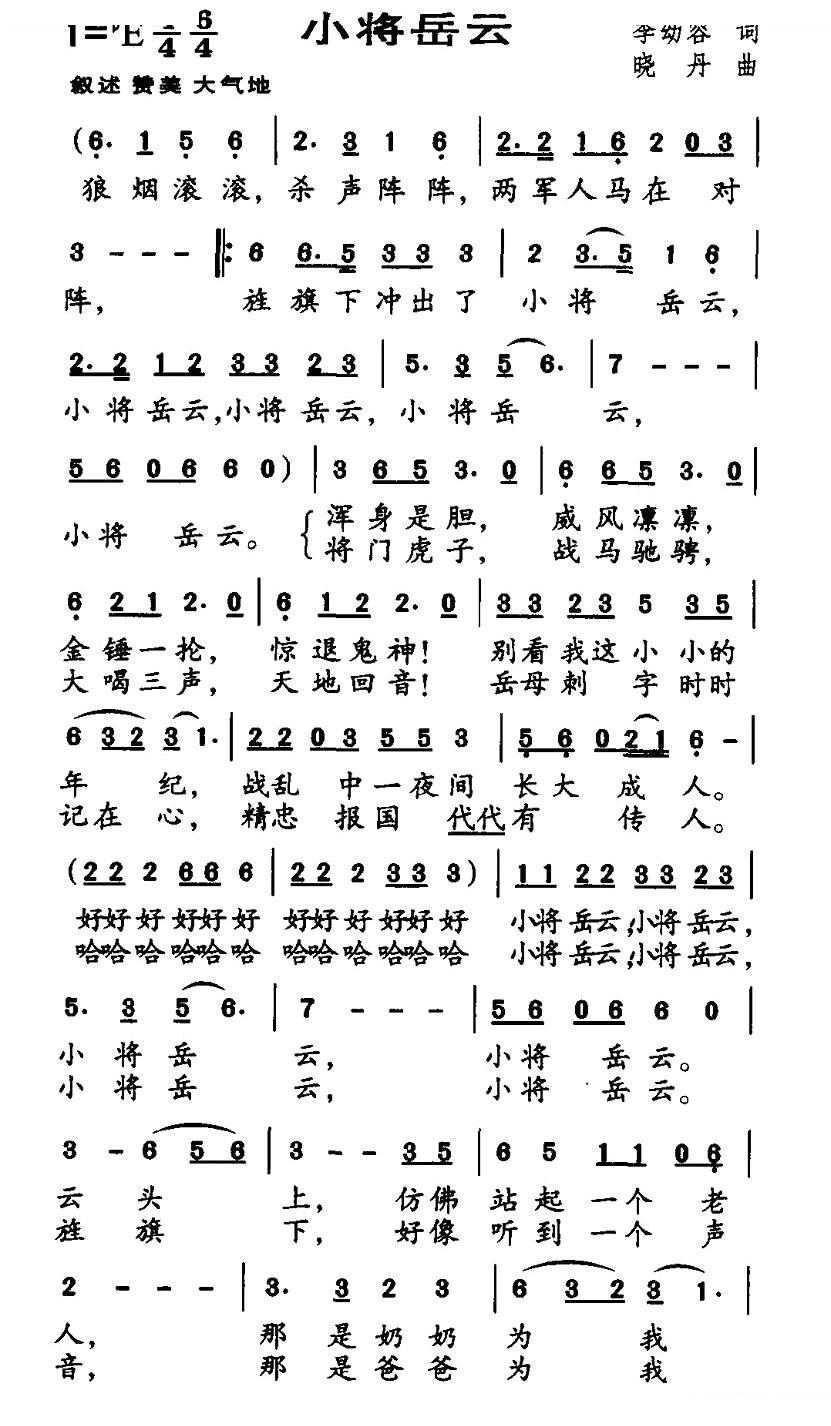 小将岳云
1=♭E 4/4 6/4
李幼容 词
晓丹 曲
叙述 赞美 大气地
(6. 1 5 6 | 2. 3 1 6 | 2. 2 1 6 2 0 3 |
狼烟滚滚，杀声阵阵，两军人马在 对
3 - - - ‖: 6 6. 5 3 3 3 | 2 3. 5 1 6 |
阵， 旌旗下冲出了 小将 岳云，
2. 2 1 2 3 3 2 3 | 5. 3 5 6. | 7 - - - |
小将岳云，小将岳云，小将岳 云，
5 6 0 6 6 0) | 3 6 5 3. 0 | 6 6 5 3. 0 |
小将 岳云。 浑身是胆， 威风凛凛，
将门虎子， 战马驰骋，
6 2 1 2. 0 | 6 1 2 2. 0 | 3 3 2 3 5 3 5 |
金锤一抡， 惊退鬼神！ 别看我这小小的
大喝三声， 天地回音！ 岳母刺 字时时
6 3 2 3 1. | 2 2 0 3 5 5 3 | 5 6 0 2 1 6 - |
年 纪，战乱 中一夜间 长大 成 人。
记在 心，精忠 报国 代代有 传人。
(2 2 2 6 6 6 | 2 2 2 3 3 3) | 1 1 2 2 3 3 2 3 |
好好好 好好好 好好好 好好好 小将岳云，小将岳云，
哈哈哈 哈哈哈 哈哈哈 哈哈哈 小将岳云，小将岳云，
5. 3 5 6. | 7 - - - | 5 6 0 6 6 0 |
小将岳 云， 小将 岳云。
小将岳 云， 小将 岳云。
3 - 6 5 6 | 3 - - 3 5 | 6 5 1 1 0 6 |
云 头 上， 仿佛 站起一个 老
旌 旗 下， 好像 听到一个 声
2 - - - | 3. 3 2 3 | 6 3 2 3 1. |
人， 那是奶奶 为 我
音， 那是爸爸 为 我